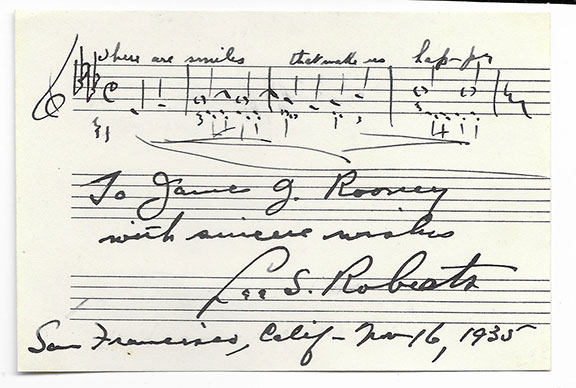 There are smiles that make us hap-py
To James J. Rooney
with sincere wishes
Lee S. Roberts
San Francisco, Calif - Nov 16, 1935